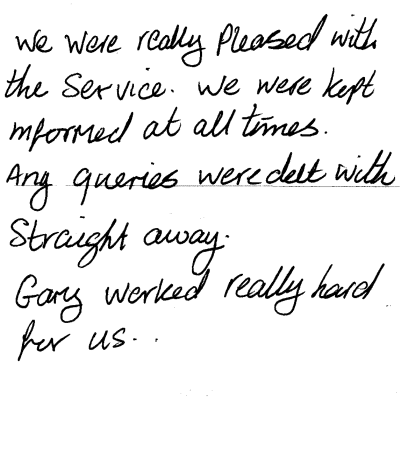 we were really Pleased with
the Service. we were kept
informed at all times.
Any queries were delt with
Straight away.
Gary worked really hard
for us...